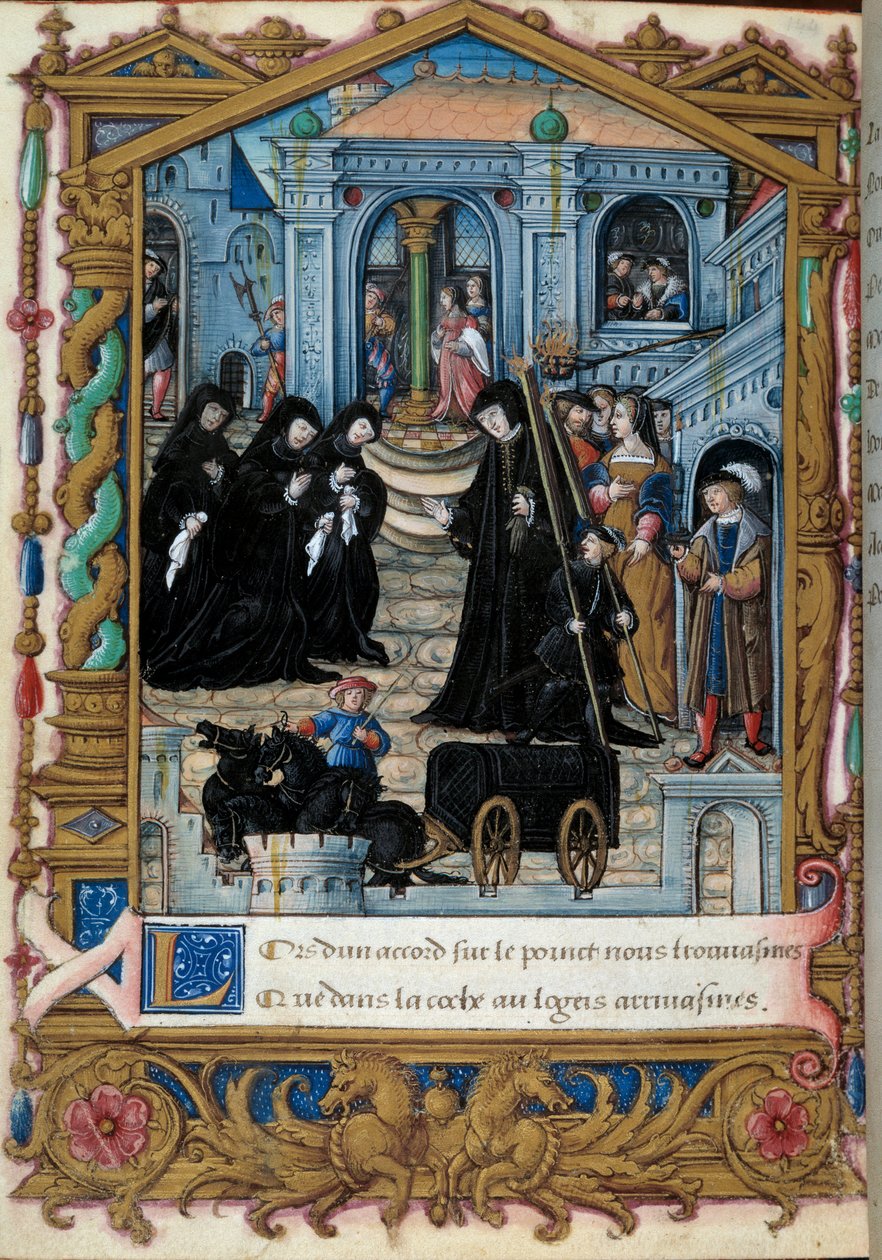 LOrs dun accord sur le poinct nous trouuasmes
Que dans la coche au logeis arriuasmes.